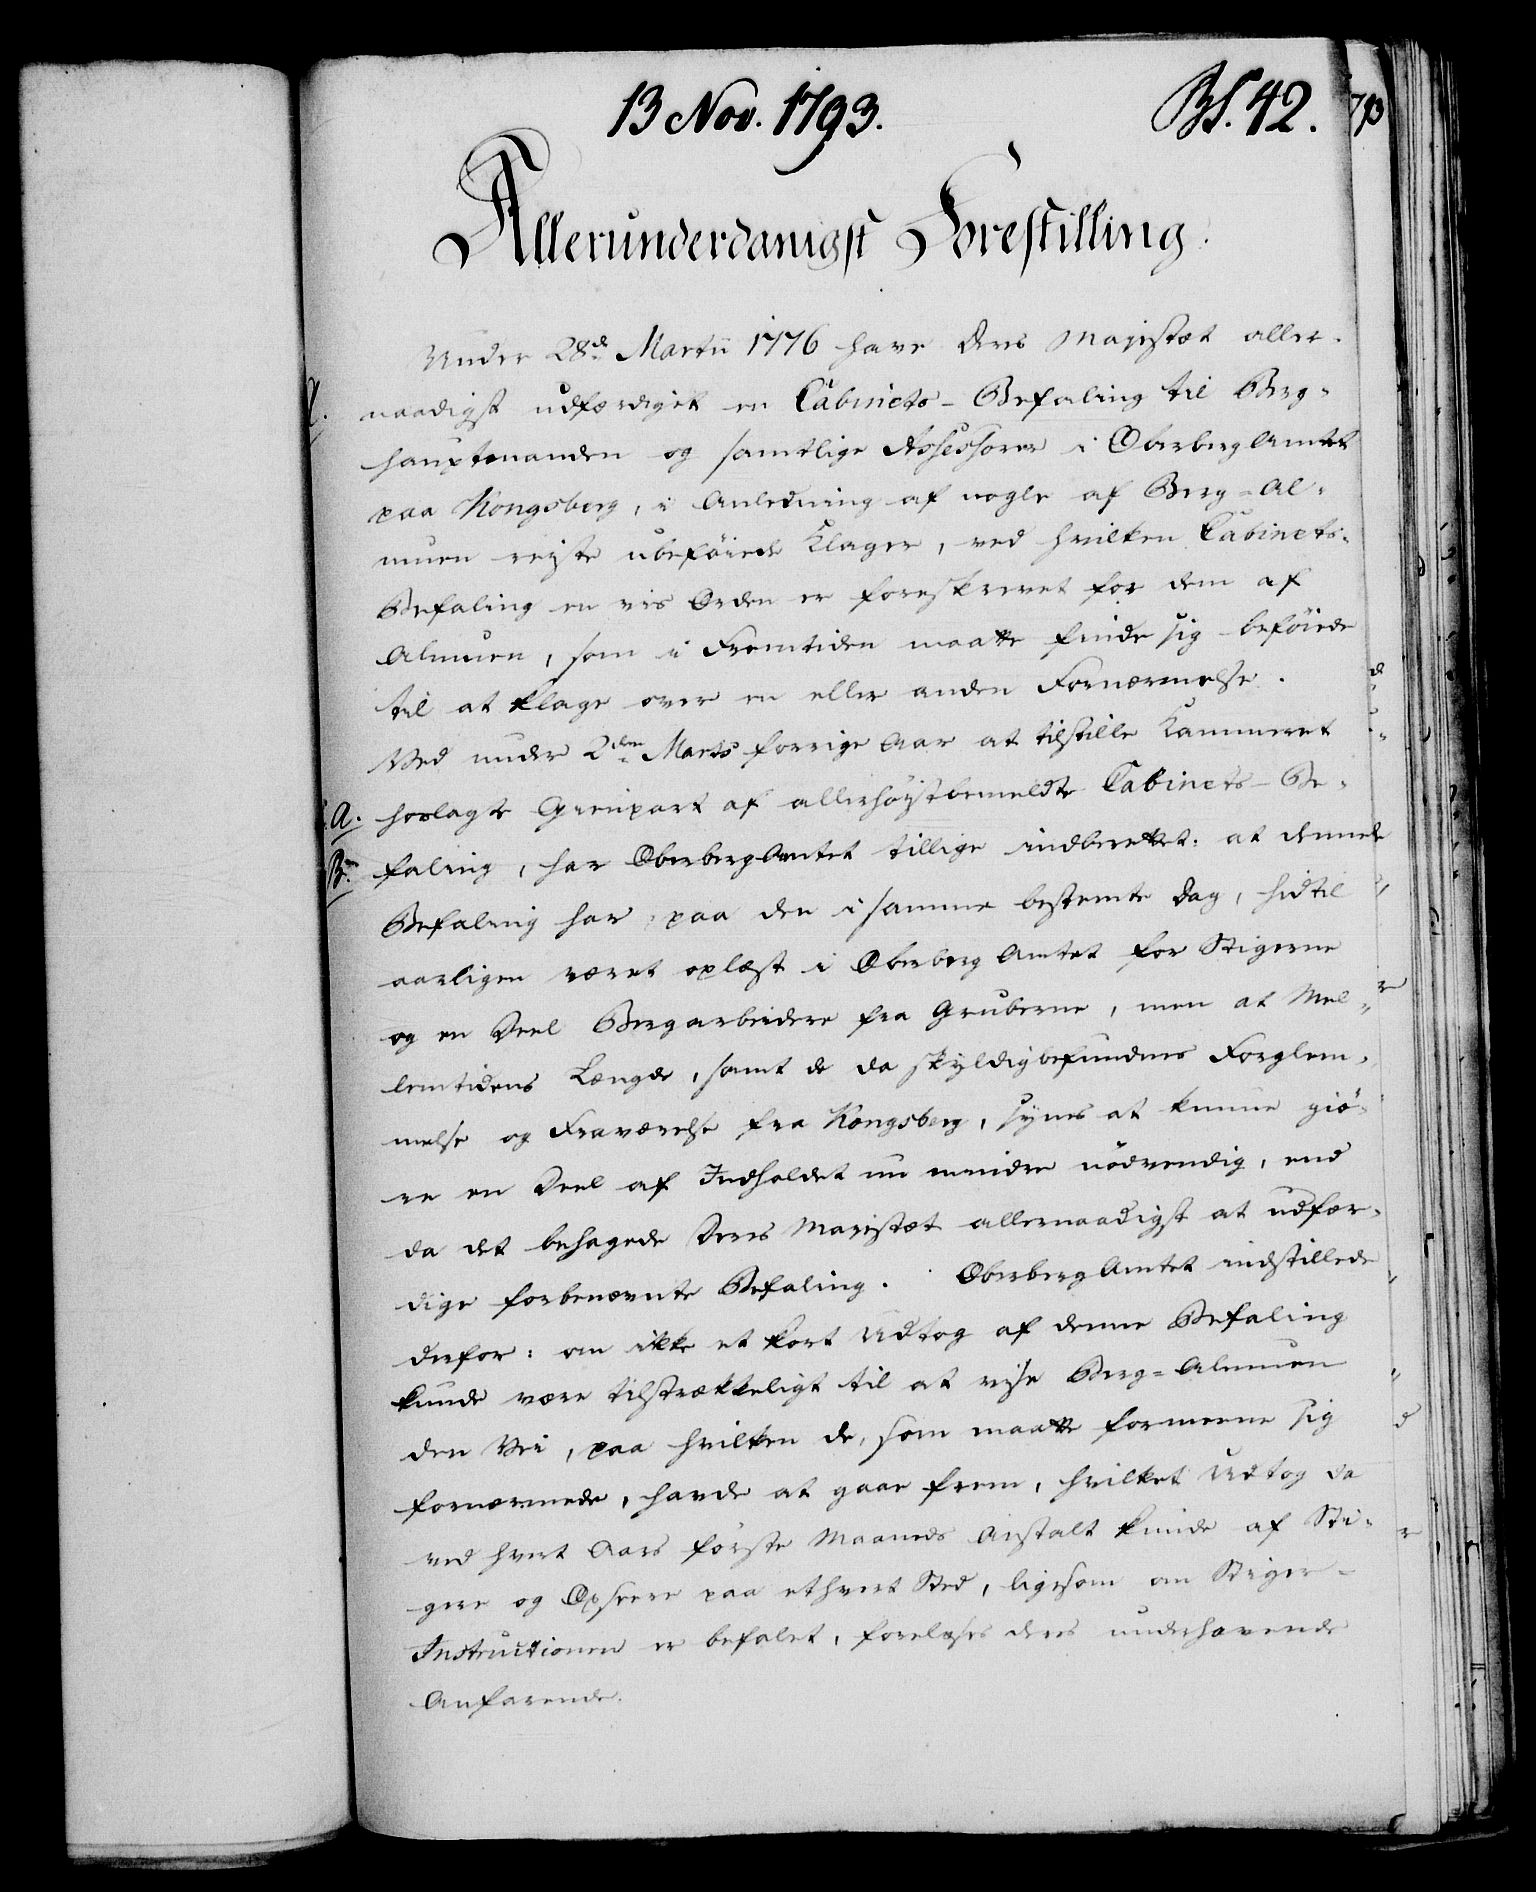 13 Nov. 1793.
Bf. 42.
Allerunderdanigst Forestilling.
Under 28d Martii 1776 have Deres Majestæt aller-
naadigst udfærdiget en Cabinets-Befaling til Berg-
hauptmanden og samtlige Assessorer i OberbergAmtet
paa Kongsberg, i Anledning af nogle af Berg-Al-
muen reiste ubeføiede Klager, ved hvilken Cabinets-
Befaling en vis Orden er foreskrevet for dem af
Almuen, som i Fremtiden maatte finde sig beføiede
til at klage over en eller anden Fornærmelse.
Ved under 2den Marts forrige Aar at tilstille Kammeret
A. hoslagte Gienpart af allerhøistbemeldte Cabinets-Be-
B. faling, har OberbergAmtet tillige indberettet: at denne
Befaling har, paa den i samme bestemte Dag, hidtil
aarligen været oplæst i OberbergAmtet for Stigerne
og en Deel Bergarbeidere fra Gruberne, men at Mel-
lemtidens Længde, samt de da skyldigbefundnes Forglem-
melse og Fraværelse fra Kongsberg, synes at kunne giø-
re en Deel af Indholdet nu mindre nødvendig, end
da det behagede Deres Majestæt allernaadigst at udfær-
dige forbenævnte Befaling. OberbergAmtet indstillede
derfor: om ikke et kort Udtog af denne Befaling
kunde være tilstrækkeligt til at vise Berg-Almuen
den Vei, paa hvilken de, som maatte formeene sig
fornærmede, havde at gaae frem, hvilket Udtog da
ved hvert Aars første Maaneds Anstalt kunde af Sti-
gere og Opseere paa ethvert Sted, ligesom om Stiger-
Instructionen er befalet, forelæses deres underhavende
Anfarende.